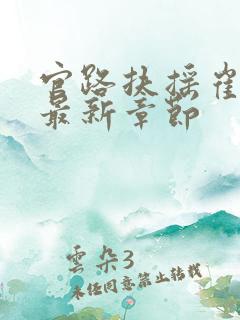 官路扶摇崔
最新章節
雲朵3
未经同意禁止转载